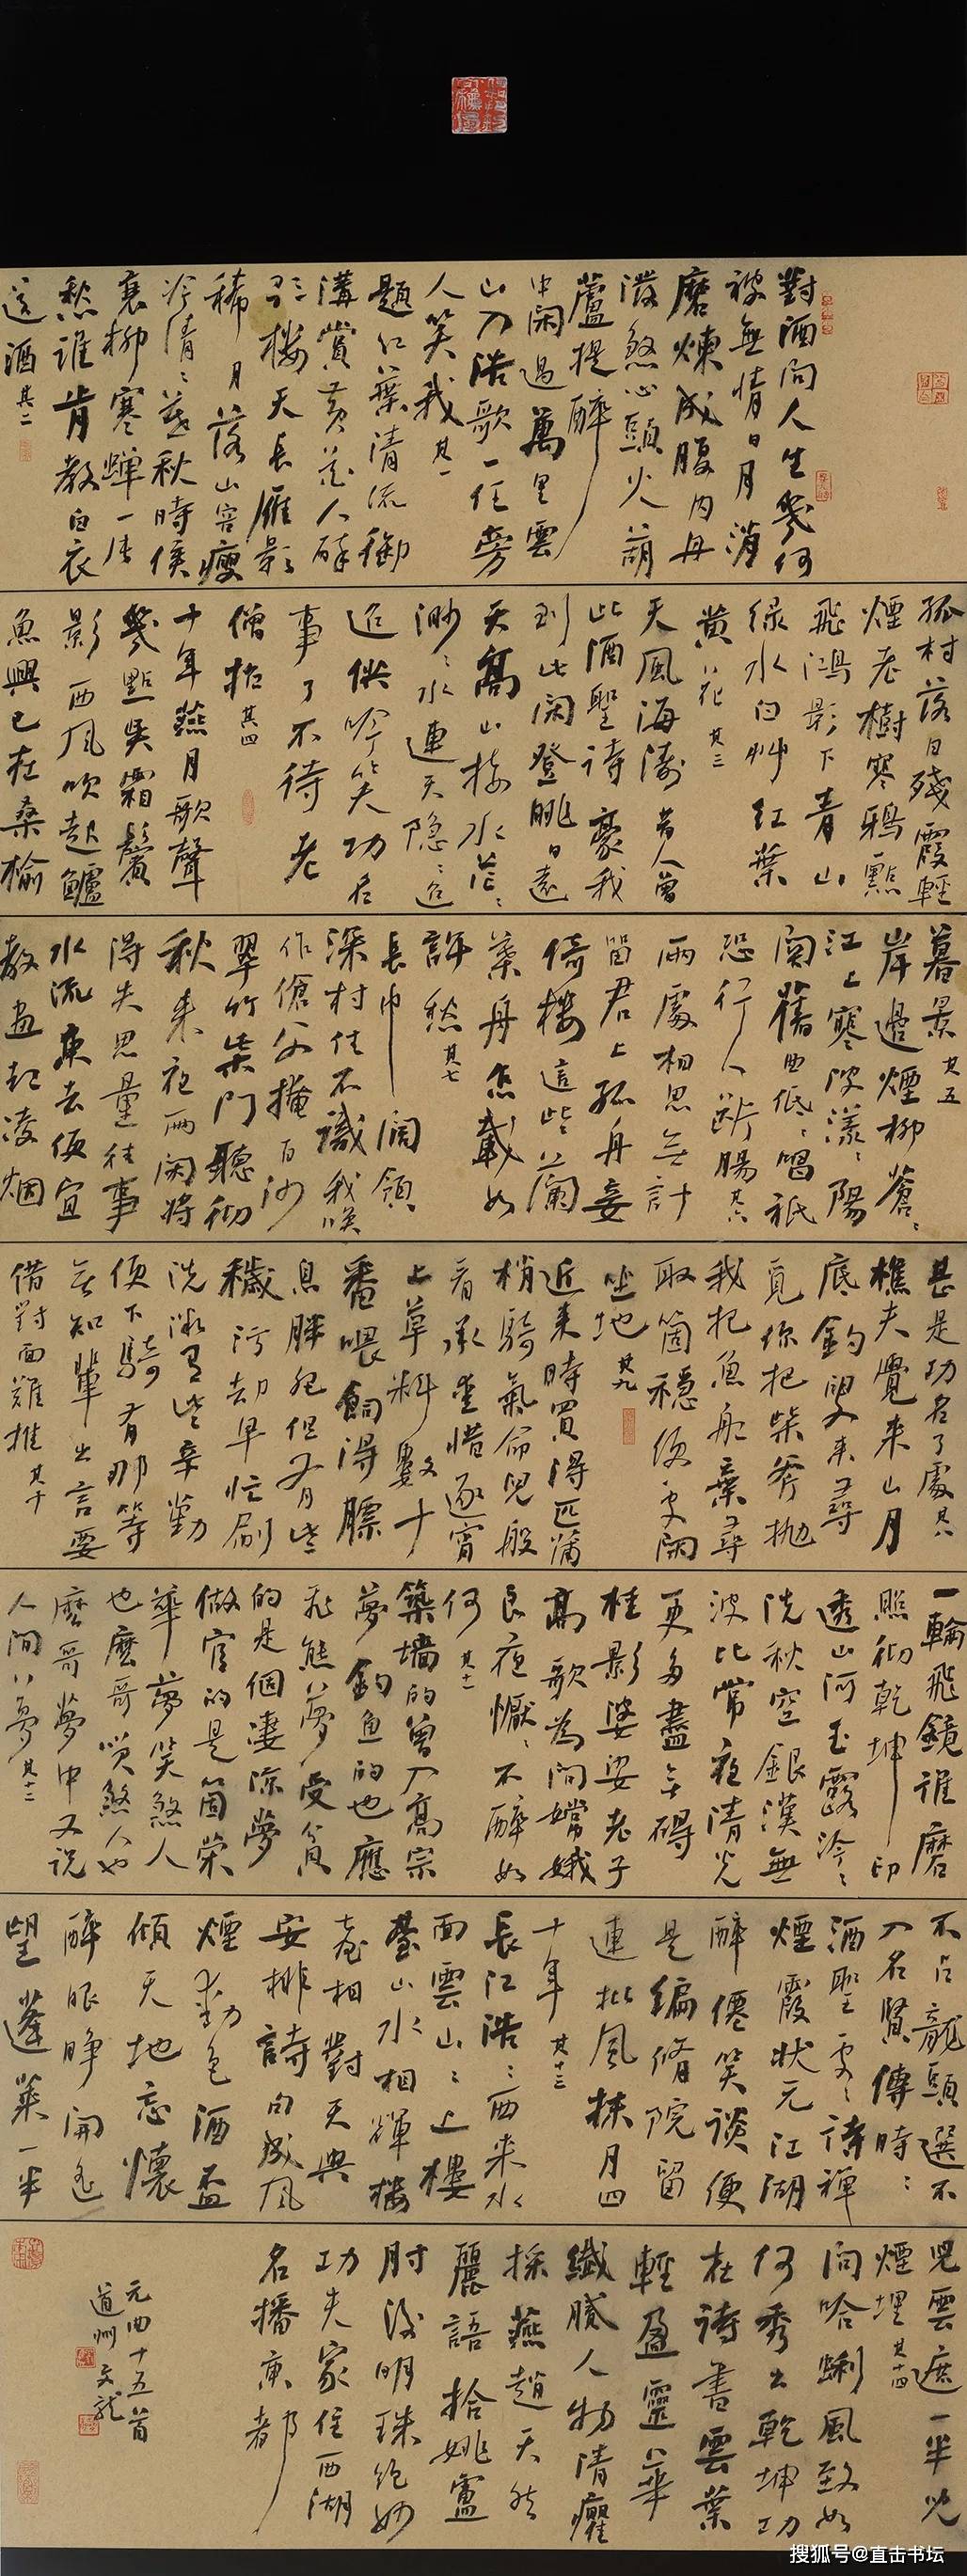 對酒问人生幾何
被無情日月消
磨煉成腹内丹
潑煞心頭火葫
蘆提醉
中闲過萬里雲
山入浩歌一任旁
人笑我其一
題红葉清流御
溝賞黄花人醉
歌楼天長雁影
稀月落山容瘦
冷清清暮秋時候
衰柳寒蟬一片
愁誰肯教白衣
送酒其二
孤村落日殘霞輕
煙老樹寒鴉點
飛鴻影下青山
绿水白草红葉
黄花其三
天風海濤昔人曾
此酒聖诗豪我
到此闲登眺日遠
天高山接水茫茫
渺渺水連天隐隐這
近供吟笑功名
事了不待老
僧招其四
十年燕月歌聲
幾點吴霜鬢
影西风吹起鱸
魚興已在桑榆
暮景其五
岸邊煙柳蒼蒼
江上寒波漾漾陽
関舊曲低低唱祇
恐行人断腸其六
兩處相思無計
留君上孤舟妾
倚樓這些蘭
葉舟怎載如
許愁其七
長巾闊領
深村住不識我唤
作傖父掩白沙
翠竹柴門聽彻
秋来夜雨闲将
得失思量往事
水流東去便宜
教画却凌烟
甚是功名了處其八
樵夫覺来山月
底釣叟来尋
覓你把柴斧抛
我把魚船棄尋
取箇穩便處闲
坐地其九
近来時買得匹蒲
梢騎氣命兒般
看承愛惜逐宵
上草料數十
番喂飼得膘
息胖肥但有些
穢污却早忙刷
洗微有些辛勤
便下騎有那等
無知輩出言要
借對面難推其十
一輪飛鏡谁磨
照彻乾坤印
透山河玉露泠泠
洗秋空銀漢無
波比常夜清光
更多盡無碍
桂影婆娑老子
高歌為问嫦娥
良夜懨懨不醉如
何其十一
築墙的曾入高宗
夢釣魚的也應
飛熊夢受貧
的是個凄凉夢
做官的是箇荣
華夢笑煞人
也麽哥笑煞人也
麽哥夢中又说
人间夢其十二
不占龍頭選不
入名賢傳時時
酒聖處處诗禪
煙霞状元江湖
醉僊笑談便
是編脩院留
連批風抹月四
十年其十三
長江浩浩西来水
面雲山山上樓
臺山水相輝樓
臺相對天與
安排詩句成风
煙動色酒盃
倾天地忘懷
醉眼睁開遥
望蓬莱一半
兒雲遮一半兒
煙埋其十四
问哈蜊風致如
何秀出乾坤功
在诗書雲葉
輕盈靈華
纖膩人物清癯
採燕趙天然
麗語拾姚盧
肘後明珠绝妙
功夫家住西湖
名播東都
元曲十五首
道州文龍
搜狐号@直击书坛